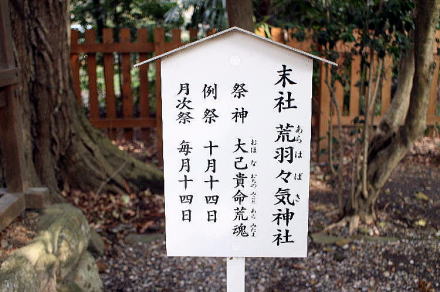 末社 荒羽々気神社
あらはばき
祭神 大己貴命荒魂
おほなむちのみことあらみたま
例祭 十月十四日
月次祭 毎月十四日